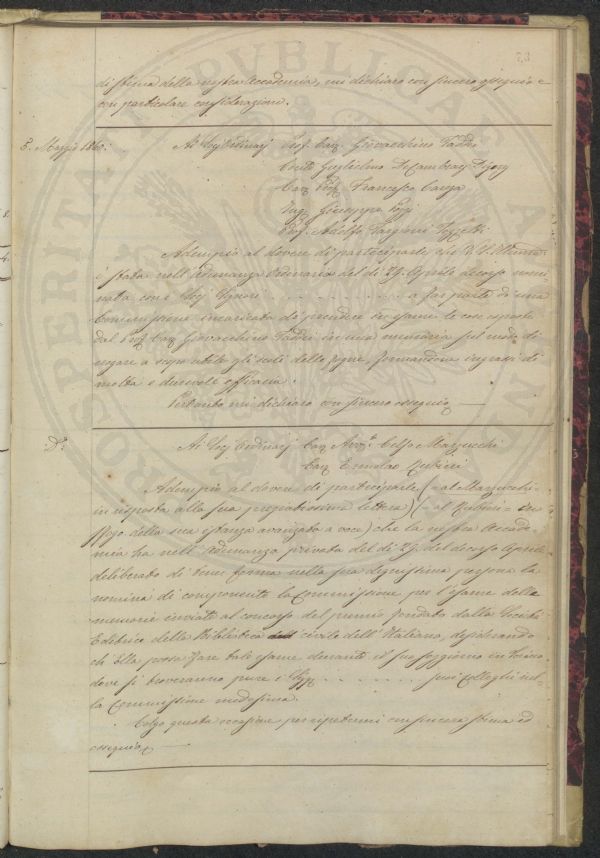 di stima della nostra Accademia, mi dichiaro con sincero ossequio e
con particolare considerazione.
Maggio 1860: Ai Sigg Ordinarj Prof. Cav. Giovacchino Taddei
Conte Guglielmo De Cambray Digny
Cav. Prof. Francesco
Ing. Giuseppe
Prof. Adolfo Targioni Tozzetti
Adempio al dovere di parteciparle che V. S. Illustre
è stata nell'Adunanza Ordinaria del dì 29 Aprile decorso nomi
nata con i Sigg Signori . . . . . . . . a far parte di una
Commissione incaricata di prendere in esame le cose esposte
dal Prof. Cav. Giovacchino Taddei in una memoria sul modo di
a scopo utile gli scoli delle fogne, formandone ingrassi di
molta e durevole efficacia.
Pertanto mi dichiaro con sincero ossequio
Do Ai Sigg Ordinarj Cav. Avv. Celso Marzucchi
Cav. Ermolao Rubieri
Adempio al dovere di parteciparle (- al Marzucchi -
in risposta alla sua pregiatissima lettera) (- al Rubieri -
sfogo della sua istanza avanzata a voce) che la nostra Accade
mia ha nell'Adunanza privata del dì 29 del decorso Aprile
deliberato di tener ferma nella sua degnissima persona la
nomina di componente la Commissione per l'esame delle
memorie inviate al concorso del premio fondato dalla Società
Editrice della Biblioteca civile dell'Italiano, desiderando
ch'Ella possa fare tale esame durante il suo soggiorno in
dove si troveranno pure i Sigg. . . . . . . . suoi Colleghi nel-
la Commissione medesima.
Colgo questa occasione per ripetermi con sincera stima ed
ossequio
PROSPERITATI PVBLICAE AVGENDAE